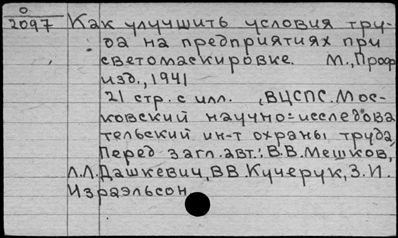 О
2097
Как улучшить условия тру-
да на предприятиях при
светомаскировке. М., Проф
изд., 1941
21 стр. с илл. , ВЦСПС. Мос-
ковский научно=исследова
тельский ин-т охраны труда,
Перед загл. авт.: В.В. Мешков,
Л.Л. Дашкевич, В В Кучерук, З.И.
Израэльсон